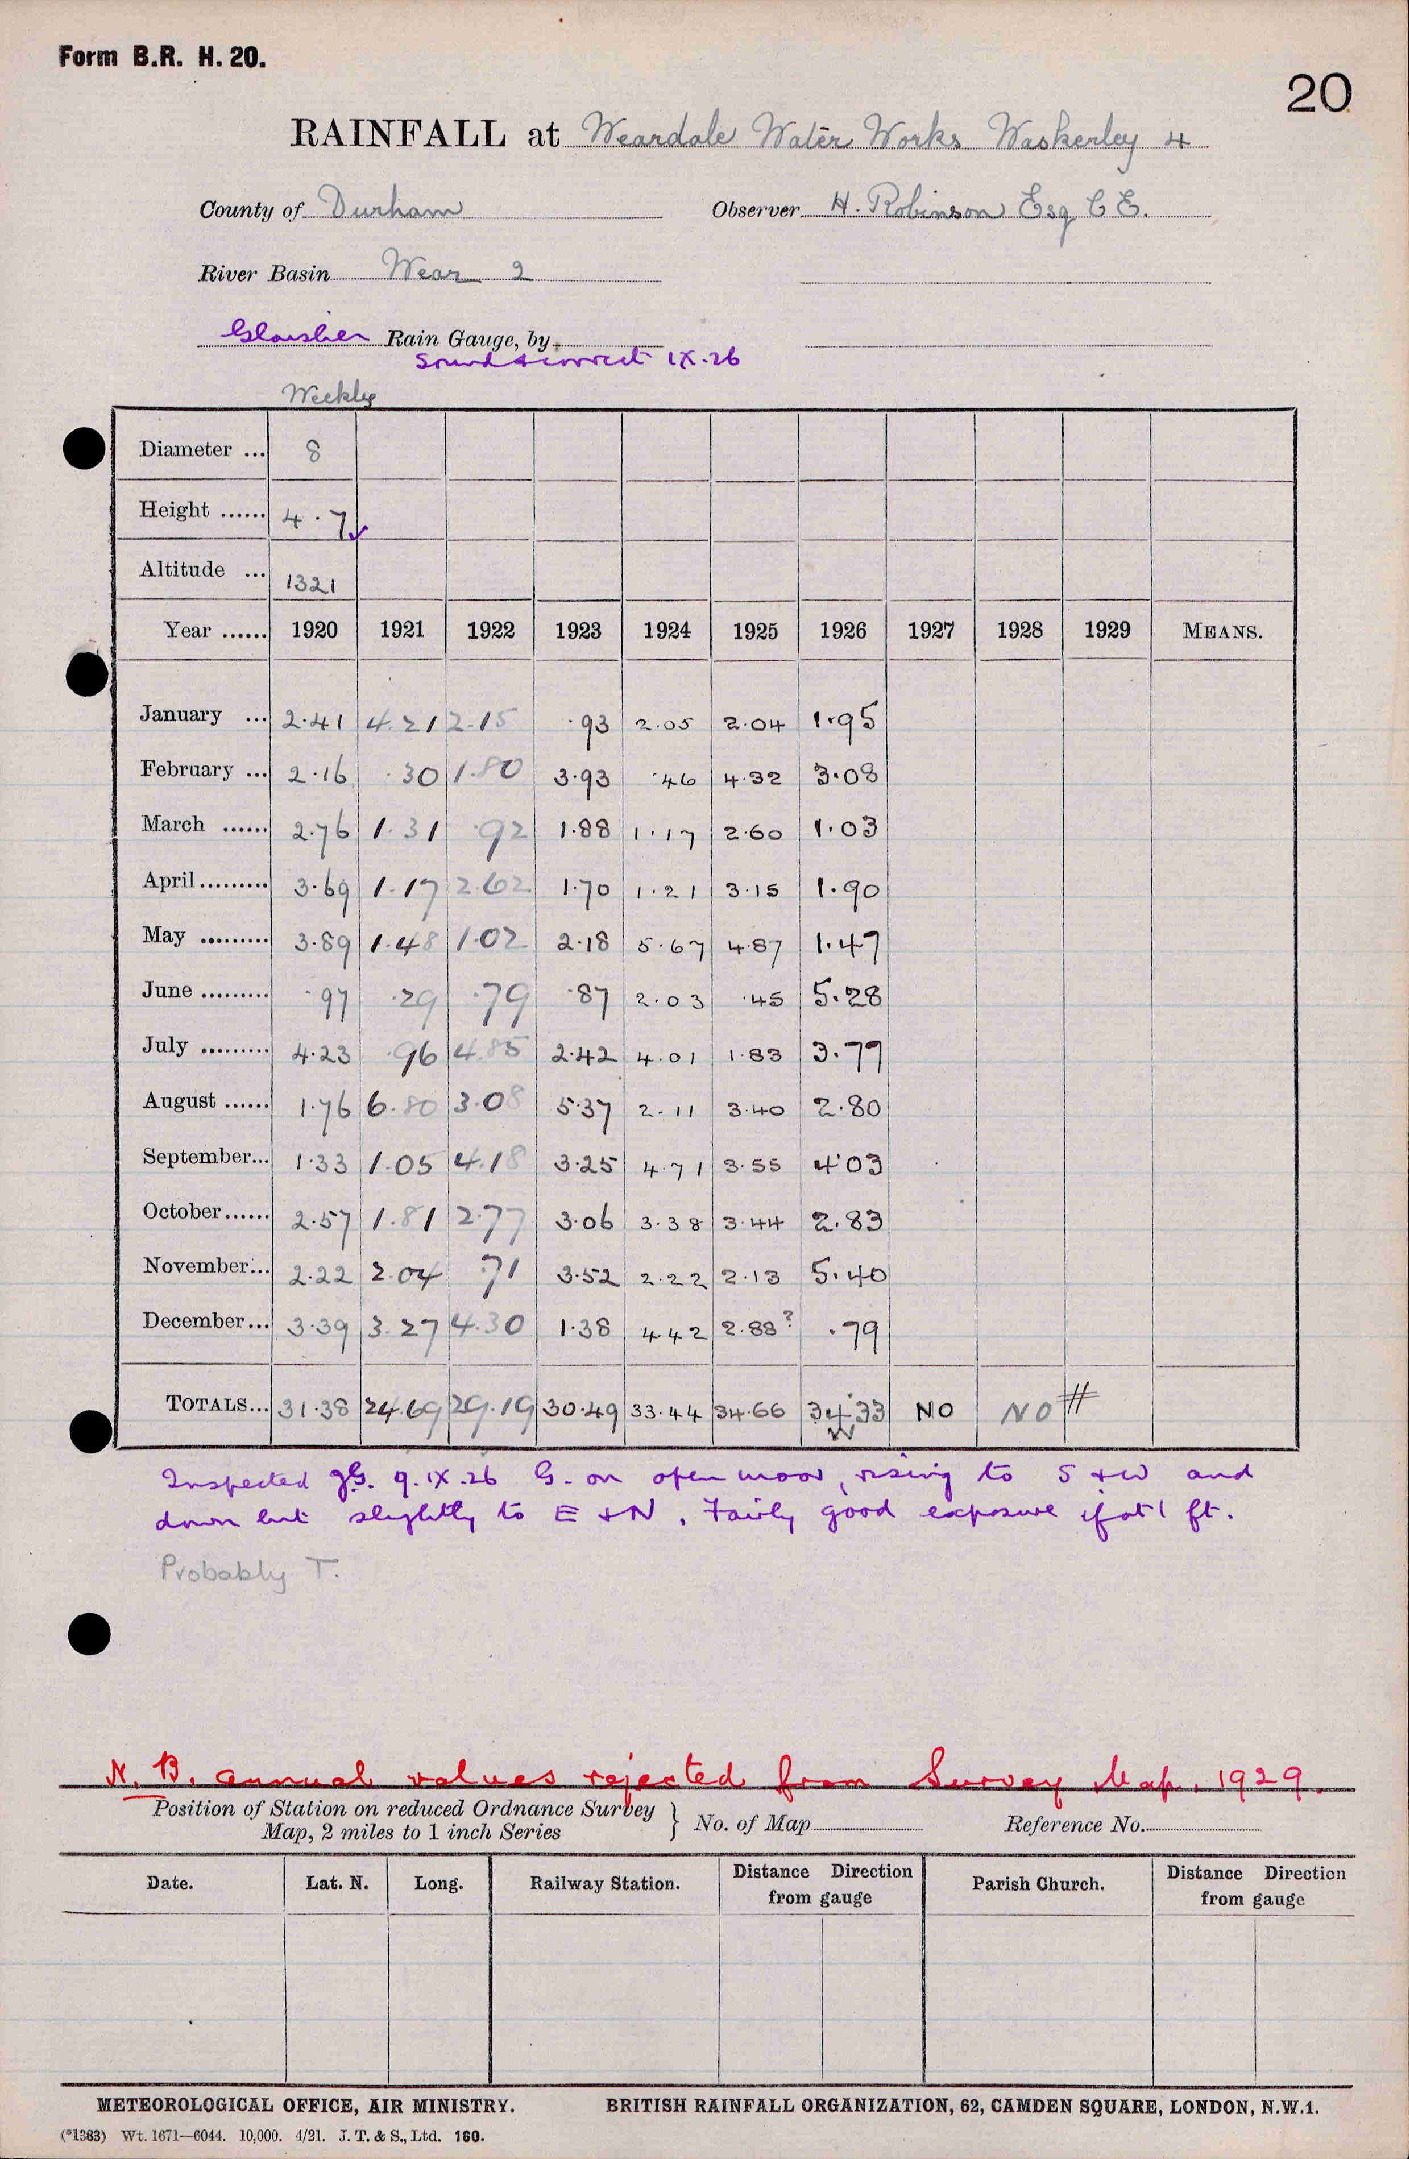 Form B.R. H. 20.
20
RAINFALL at Weardale Water Works Waskerley 4
County of Durham Observer H. Robinson Esq C E.
River Basin Wear 2
Glaisher Rain Gauge, by
Sound & correct IX.26
Weekly
Diameter ... 8
Height ...... 4.7 ✓
Altitude ... 1321
Year ...... 1920 1921 1922 1923 1924 1925 1926 1927 1928 1929 MEANS.
January ... 2.41 4.21 2.15 .93 2.05 2.04 1.95
February ... 2.16 .30 1.80 3.93 .46 4.32 3.08
March ...... 2.76 1.31 .92 1.88 1.17 2.60 1.03
April ......... 3.69 1.17 2.62 1.70 1.21 3.15 1.90
May ......... 3.89 1.48 1.02 2.18 5.67 4.87 1.47
June ......... .97 .29 .79 .87 2.03 .45 5.28
July ......... 4.23 .96 4.85 2.42 4.01 1.83 3.77
August ...... 1.76 6.80 3.08 5.37 2.11 3.40 2.80
September... 1.33 1.05 4.18 3.25 4.71 3.55 4.03
October...... 2.57 1.81 2.77 3.06 3.38 3.44 2.83
November... 2.22 2.04 .71 3.52 2.22 2.13 5.40
December... 3.39 3.27 4.30 1.38 4.42 2.88? .79
TOTALS... 31.38 24.69 29.19 30.49 33.44 34.66 34.33 NO NO #
Inspected 9.IX.26 G. on open moor, rising to S & W and
down but slightly to E & N. Fairly good exposure if at 1 ft.
Probably T.
N.B. annual values rejected from Survey Map. 1929.
Position of Station on reduced Ordnance Survey
Map, 2 miles to 1 inch Series } No. of Map Reference No.
Date. Lat. N. Long. Railway Station. Distance Direction from gauge Parish Church. Distance Direction from gauge
METEOROLOGICAL OFFICE, AIR MINISTRY. BRITISH RAINFALL ORGANIZATION, 62, CAMDEN SQUARE, LONDON, N.W.1.
(*1383) Wt. 1671—6044. 10,000. 4/21. J. T. & S., Ltd. 160.